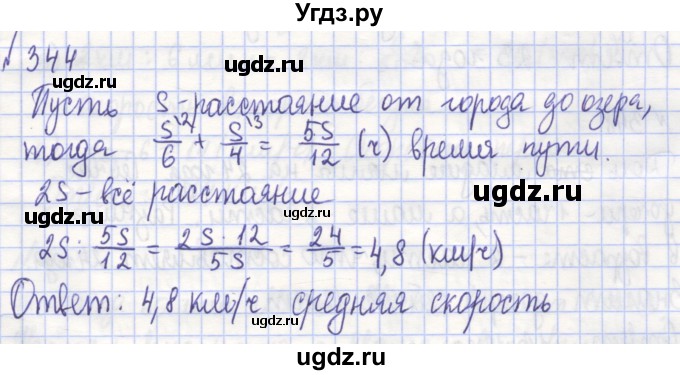 Угдз.ру
№ 344
Пусть S - расстояние от города до озера,
тогда S\2/6 + S\3/4 = 5S/12 (ч) время пути.
2S - всё расстояние
2S : 5S/12 = 2S · 12/5S = 24/5 = 4,8 (км/ч)
Ответ: 4,8 км/ч средняя скорость
ugdz.ru
ugdz.ru
ugdz.ru
ugdz.ru
ugdz.ru
ugdz.ru
ugdz.ru
ugdz.ru
ugdz.ru
ugdz.ru